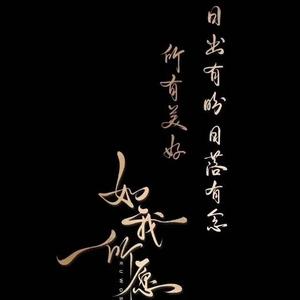 日出有盼日落有念
所有美好
如我
所愿